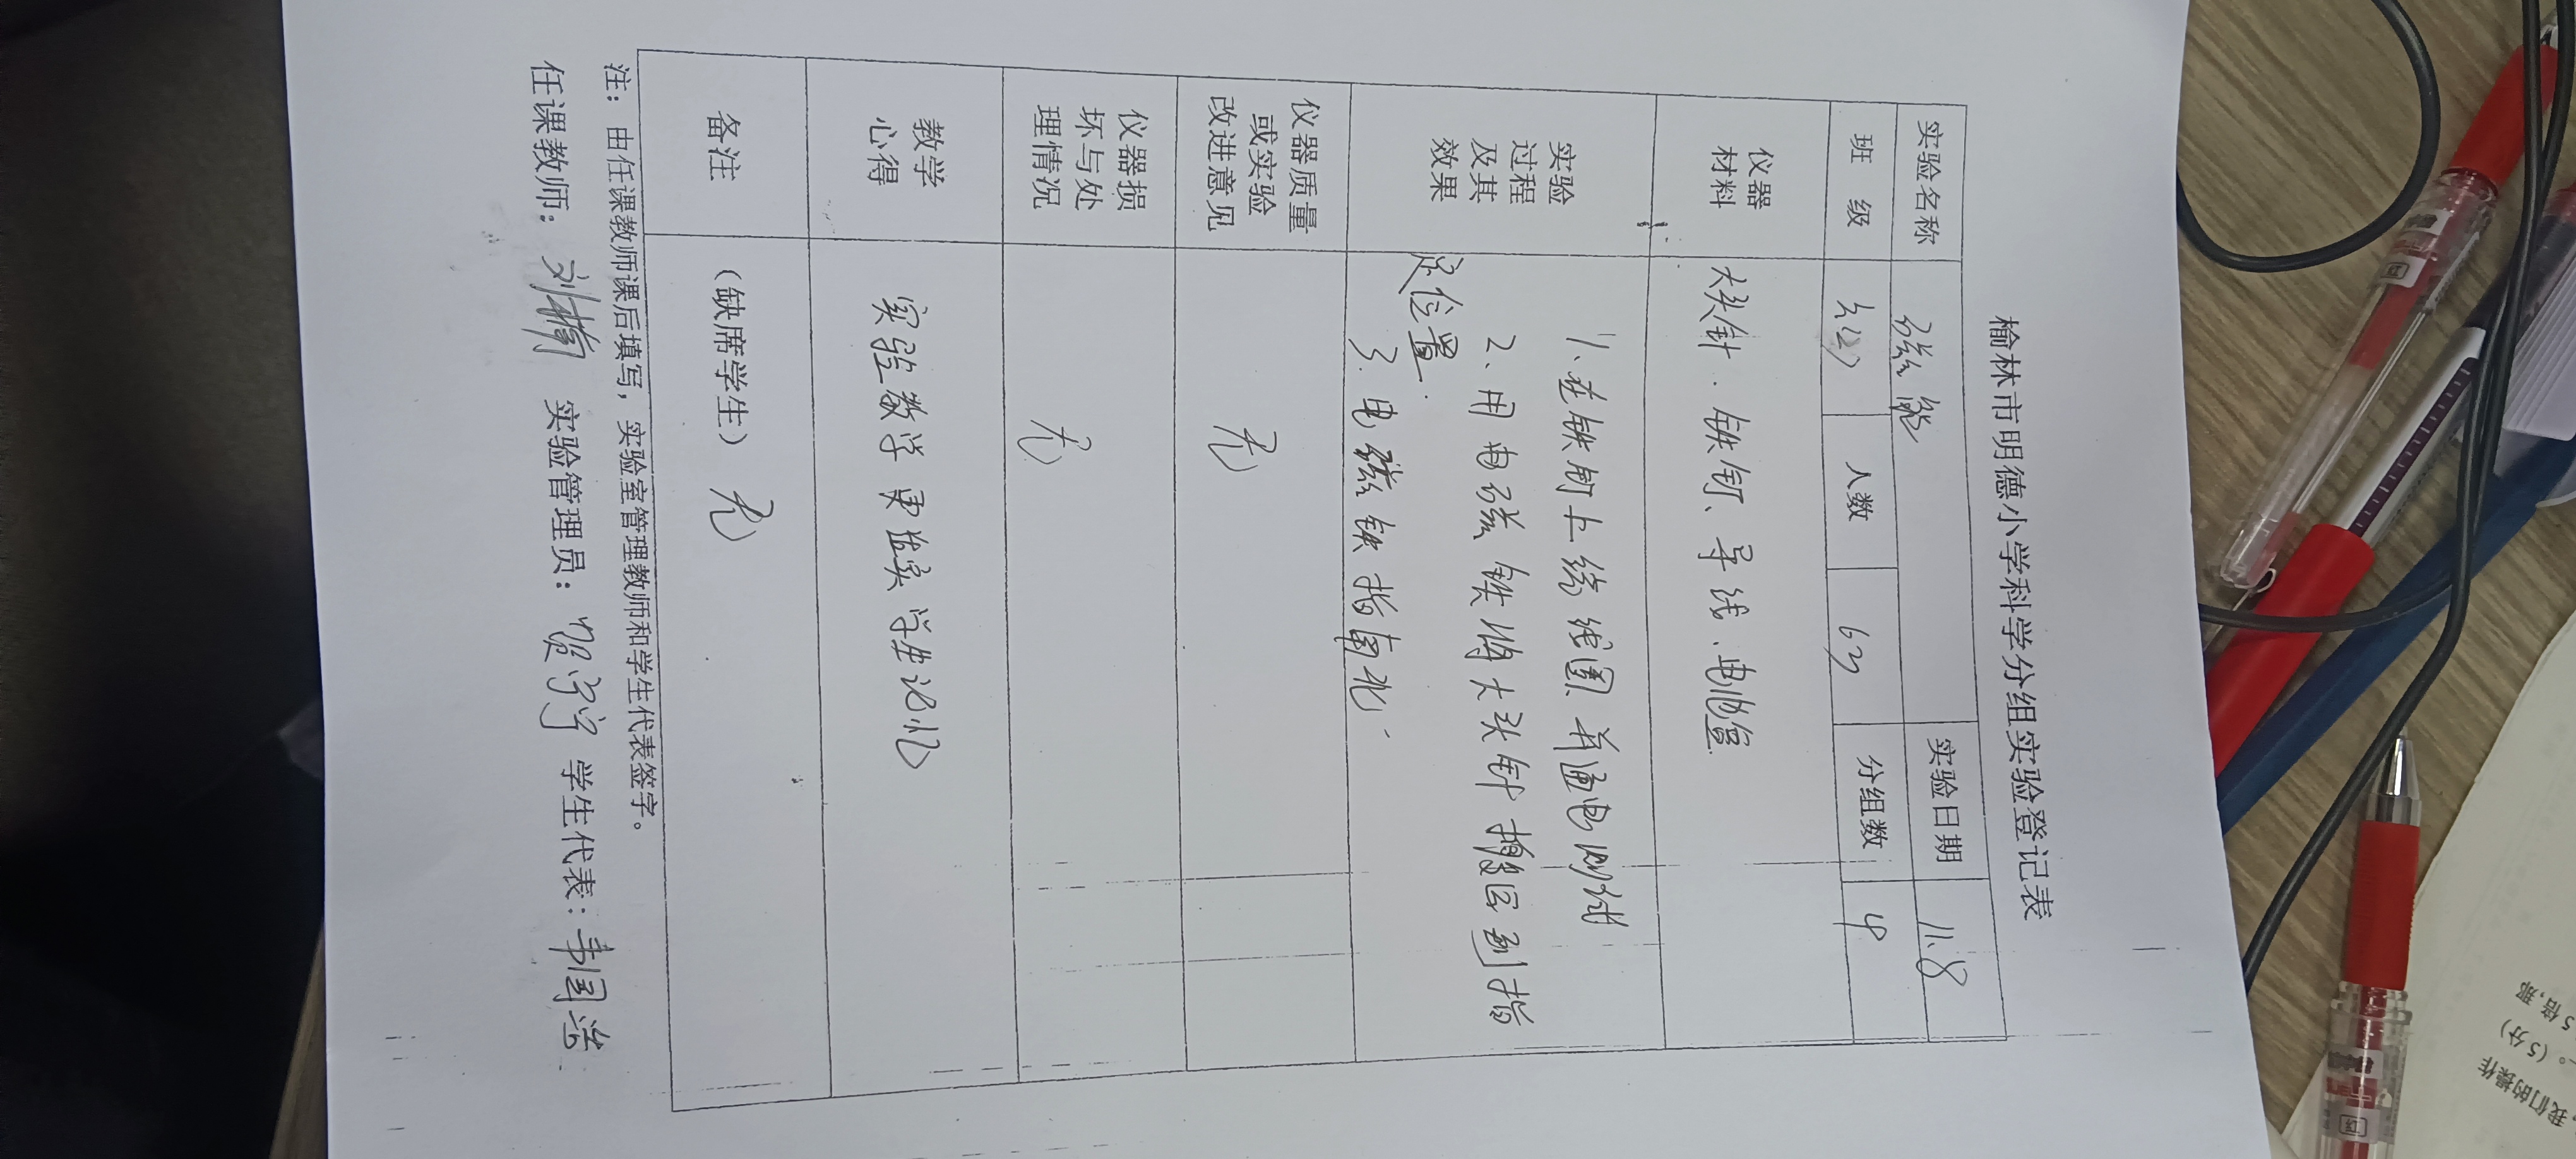 榆林市明德小学科学分组实验登记表
实验名称 磁 实验日期 11.8
班 级 人数 63 分组数 4
仪器
材料
大头针、铁钉、导线、电池盒
实验
过程
及其
效果
1、在铁钉上绕线圈并通电
2、用电磁铁将大头针搬运到指
定位置.
3、电磁铁指南北.
仪器质量
或实验
改进意见
无
仪器损
坏与处
理情况
无
教学
心得
实验教学更 实学生记忆
备注
(缺席学生) 无
注:由任课教师课后填写,实验室管理教师和学生代表签字。
任课教师:刘楠 实验管理员:贺 学生代表:韦国
5倍,那
。(5分)
我们的操作